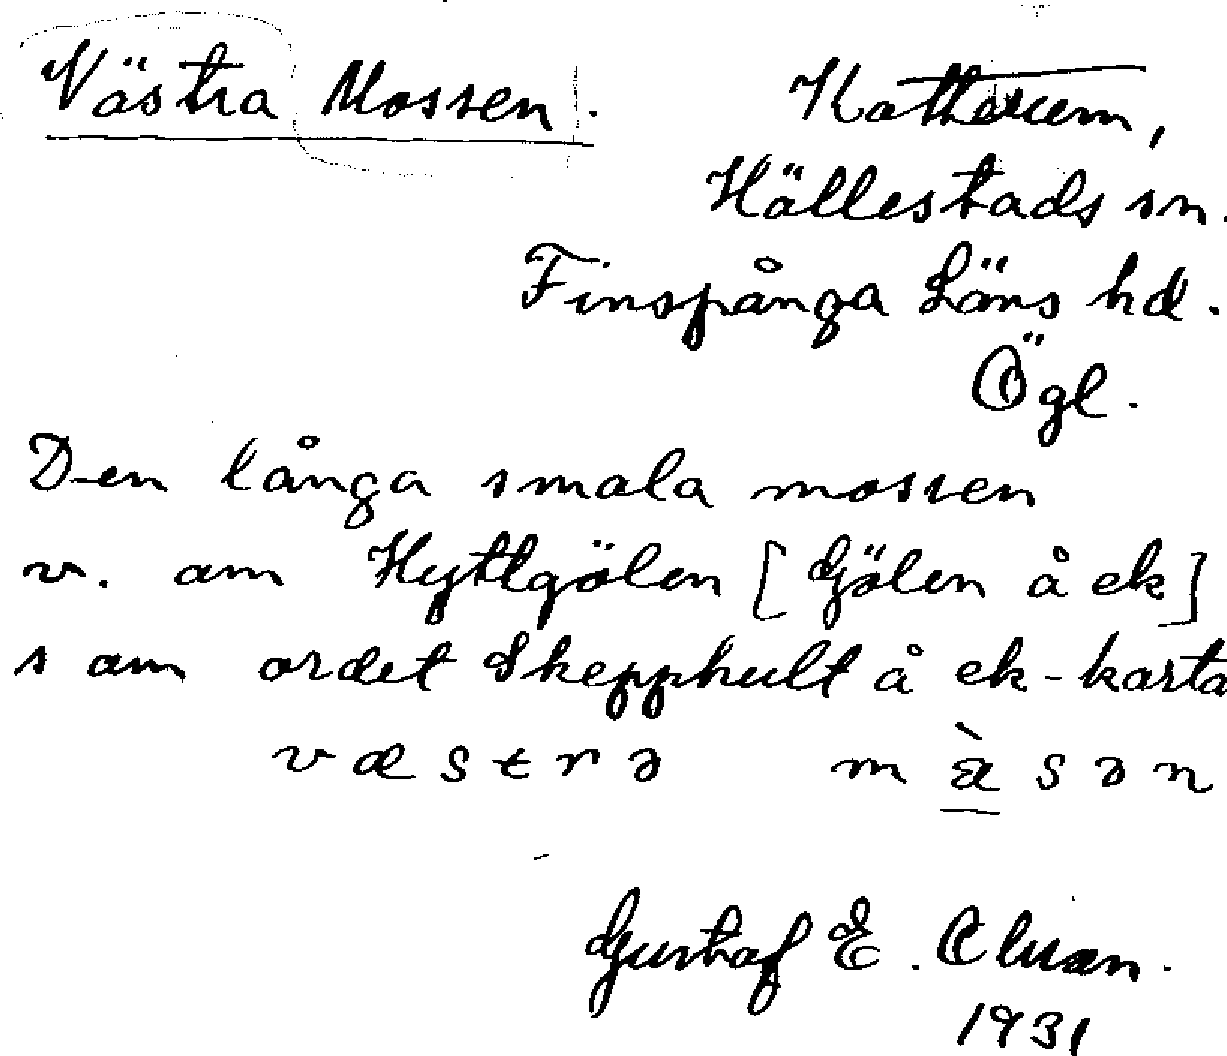 Västra Mossen. Katterum,
Hällestads sn.
Finspånga Läns hd.
Ögl.
Den långa smala mossen
v. om Hyttgölen [Gölen å ek]
s om ordet Skepphult å ek-karta
Gustaf E.
1931